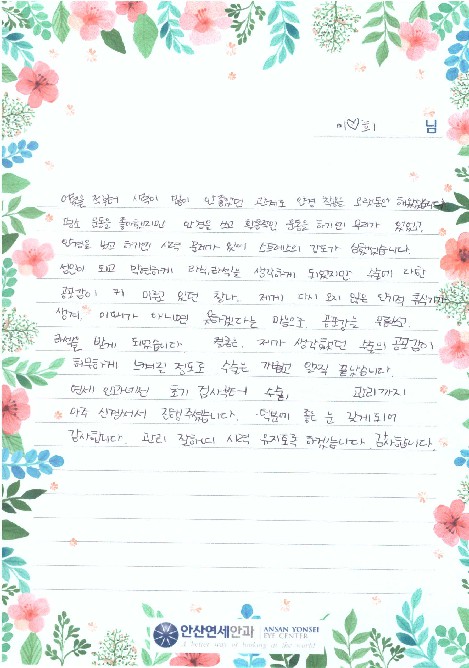 이♡희 님
어렸을 적부터 시력이 많이 안 좋았던 관계로 안경 착용을 오랫동안 해왔습니다.
평소 운동을 좋아하지만 안경을 쓰고 활동적인 운동을 하기엔 무리가 있었고,
안경을 벗고 하기엔 시력 문제가 있어 스트레스의 강도가 심했었습니다.
성인이 되고 막연하게 라식, 라섹을 생각하게 되었지만 수술에 대한
공포감이 커 미루고 있던 찰나, 제게 다시 오지 않을 장기적 휴식기가
생겨, 이때가 아니면 못하겠다는 마음으로, 공포감을 무릅쓰고
라섹을 받게 되었습니다. 결론은, 제가 생각했던 수술의 공포감이
허무하게 느껴진 정도로 수술은 간단하고 일찍 끝났습니다.
연세안과에선 초기 검사부터 수술, 관리까지
아주 신경써서 진행해주셨습니다. 덕분에 좋은 눈 갖게되어
감사합니다. 관리 잘해서 시력 유지토록 하겠습니다. 감사합니다.
안산연세안과 ANSAN YONSEI EYE CENTER
A better way of looking at the world